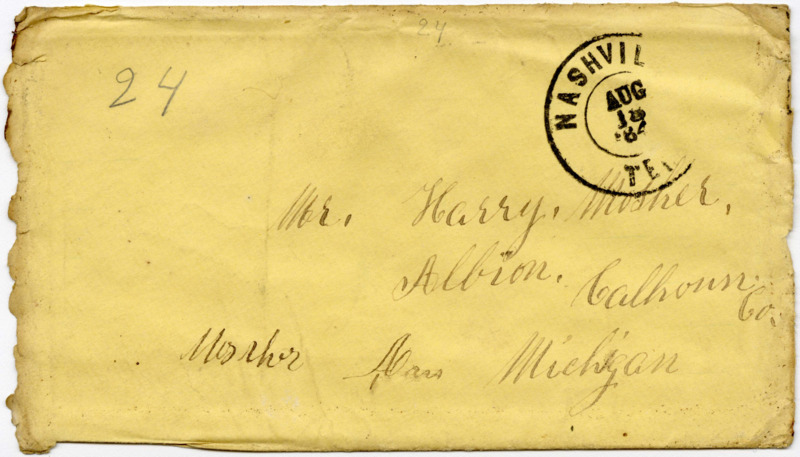 24
24
NASHVIL
AUG
18
'64
TE
Mr. Harry. Mosher.
Albion. Calhoun.
Co.
Mosher Michigan